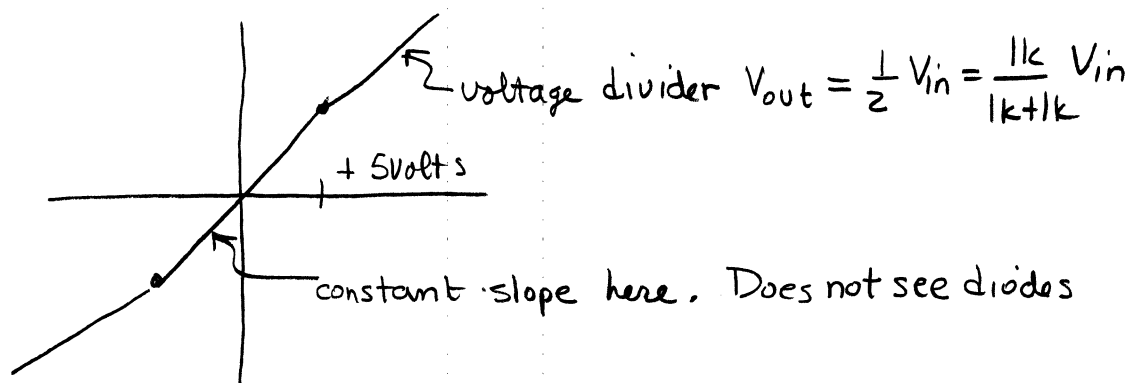 voltage divider Vout = 1/2 Vin = 1k/(1k+1k) Vin
+ 5volts
constant slope here. Does not see diodes